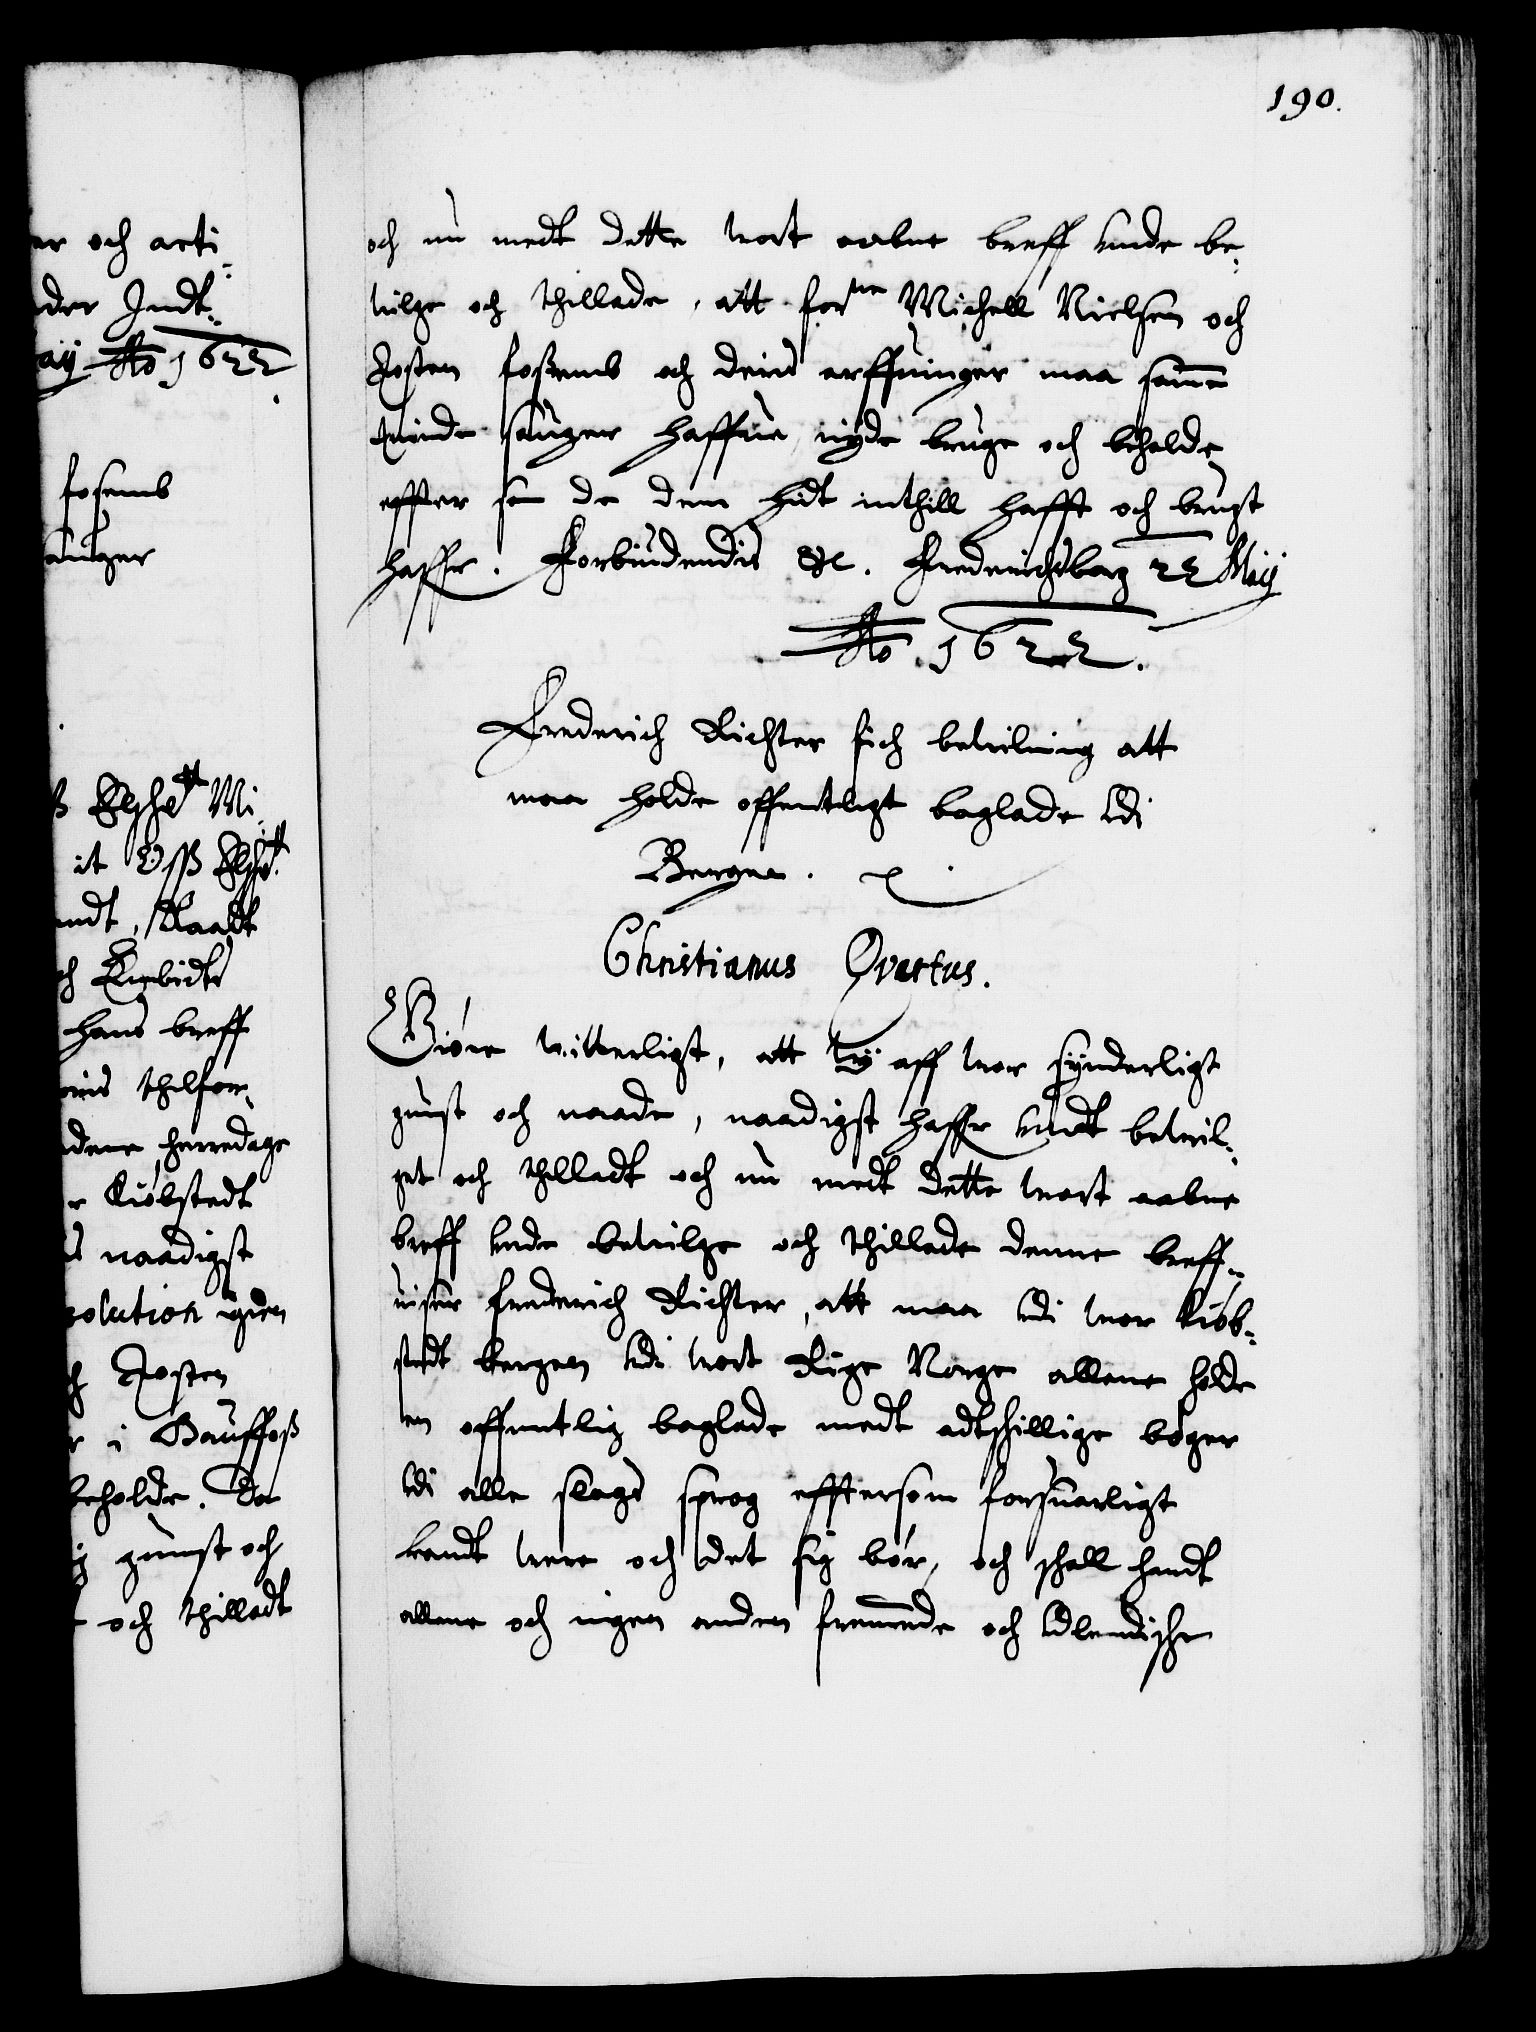 190.
och nu medt dette wort aabne breff unde be-
wilge och thillade, att forne Michell Nielsen och
Josten foßemb och deris arffuinger maa samme
tiende sauger haffue, nyde bruge och beholde
effter som de dem hidt inthill hafft och brugt
haffr. Forbiudendis &c. Frederichsborg 22 Maij
Ao 1622.
Frederich Richter fich beuilning att
maa holde offentligt boglade udi
Bergen.
Christianus Qvartus.
Giøre witterligt, att wij aff wor synderligt
gunst och naade, naadigst haffr undt bewil-
get och thilladt och nu medt dette wort aabne
breff unde bewilge och thillade denne breff-
uiser Frederich Richter, att maa udi wor Kiøb-
stedt Bergen udi wort Rige Norge allene holde
en offentlig boglade medt adtschillige bøger
udi alle slags sprog efftersom forsuarligt
kandt were och det sig bør, och schall handt
allene och ingen anden fremmede och udlendische
er och arti-
der Indt-
aij Ao 1622
fosemb
auger
ß Elsche Mi-
it Oss Elsche
ndt, Raadt
ch Embidts
hans breff
thilfor-
dene herredage
r Kiøbstedt
s naadigst
solution igien
ch Josten
r i Gauffoß
beholde. Da
ig gunst och
och thilladt